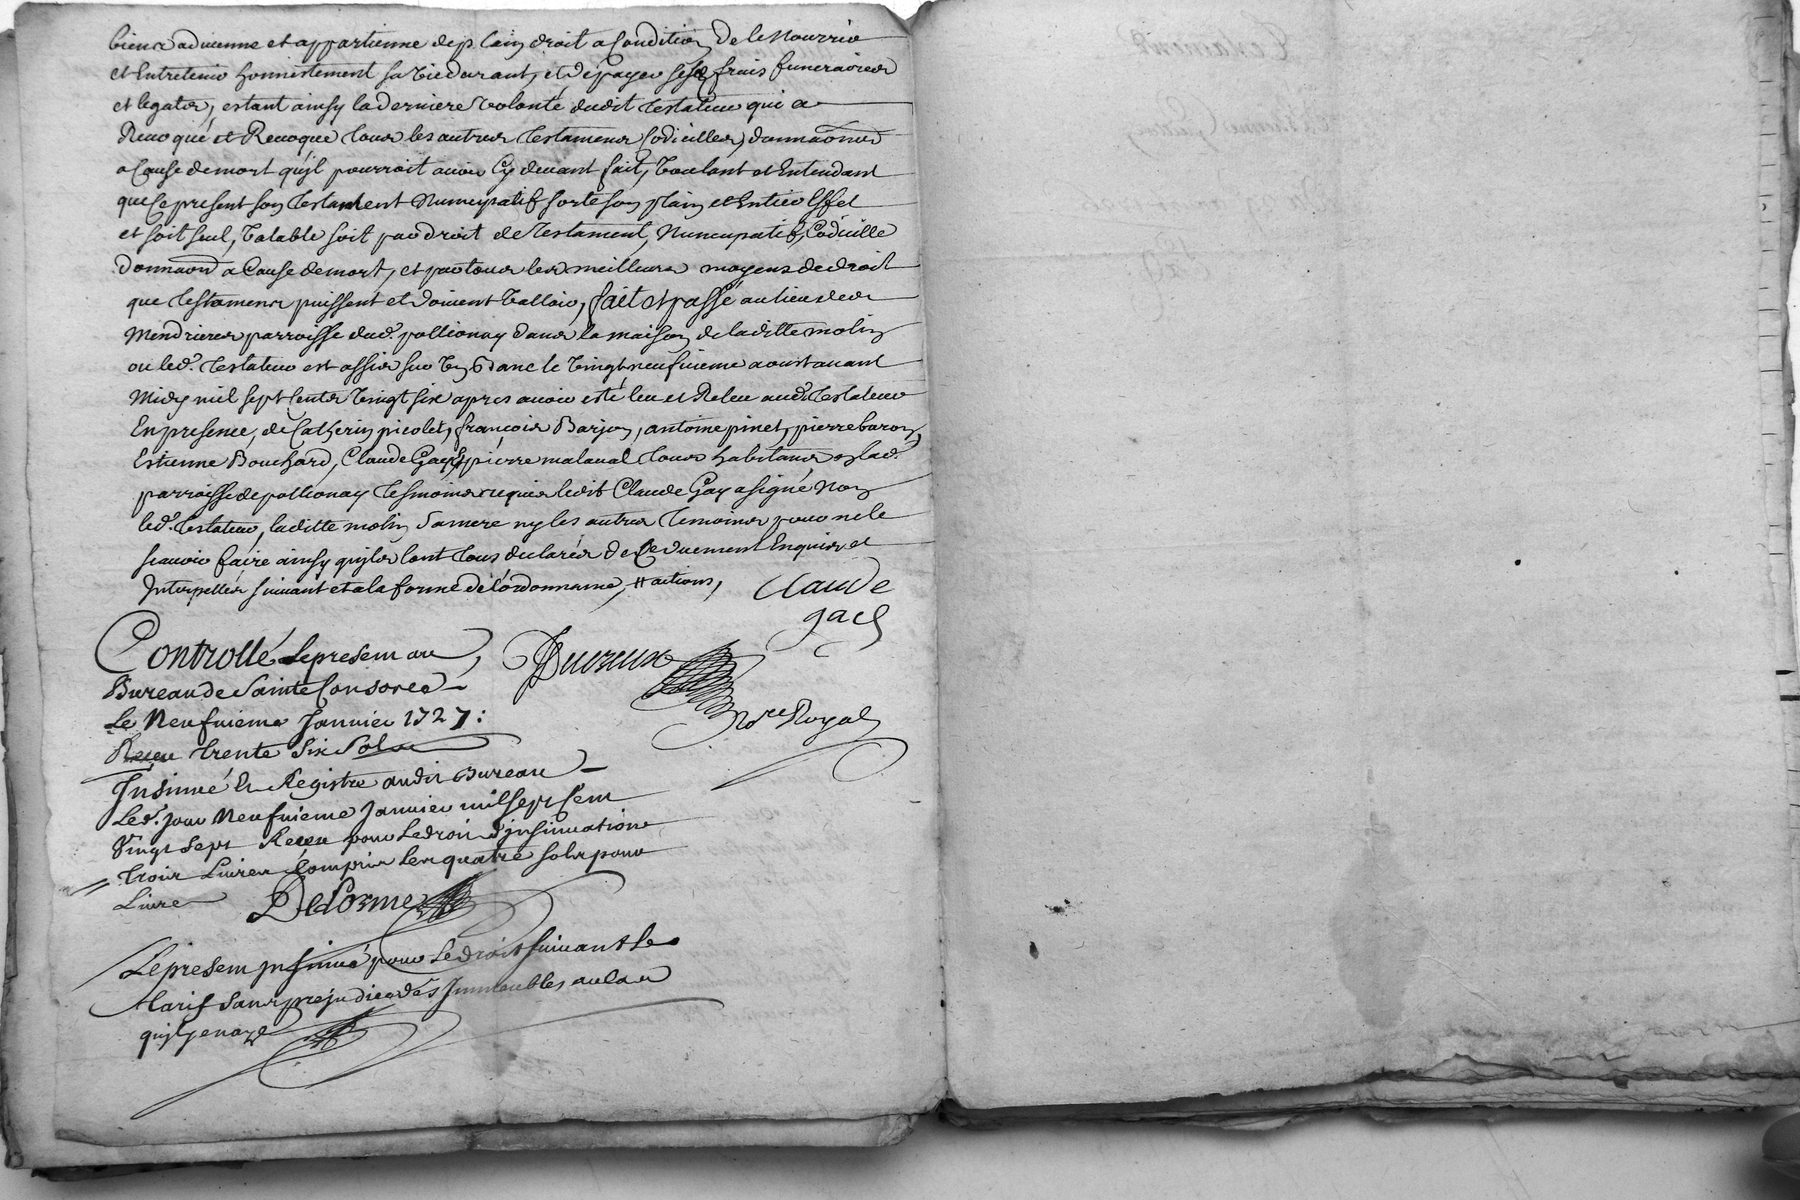 biens advienne et appartienne de plain droit a Condition de le Nourrir
et Entretenir honnestement sa vie durant, et de payer ses frais funeraires
et legats, estant ainsy la derniere volonté dudit testateur qui a
Revoqué et Revoque tous les autres testamens Codicilles, donnaõns
a Cause de mort qu'jl pourroit avoir Cy devant fait, voulant et Entendant
que Ce present son testament Nuncupatif sorte son plain et Entier Effet
et soit seul, valable soit par droit de testament, Nuncupatif, Codicille
donnaon a Cause de mort, et par tous les meilleurs moyens de droit
que testamens puissent et doivent valloir, fait et passé au lieu des
Mendrieres parroisse dud. pollionay dans la maison de laditte molin
ou led. testateur est assis sur un banc le vingt neufvieme aoust avant
Midy mil sept cents vingt six apres avoir esté leu et Releu audit testateur
En presence, de Catherin picolet, françois Barjon, antoine pinet, pierre baron,
Estienne Bouchard, Claude Gay, et pierre malaval tous habitans en lad.
parroisse de pollionay tesmoins requis ledit Claude Gay a signé Non
led. testateur, laditte molin sa mere ny les autres temoins pour ne le
scavoir faire ainsy qu'jls l'ont tous declarés de Ce duement Enquis et
Interpellés suivant et a la forme de l'ordonnance, # actions,
Claude
gaes
Controllé le present au
Bureau de Sainte Consorce
Le Neufvieme Janvier 1727:
Receu trente six Sols
Ducreux
No.re Royal
Insinué Et Registré audit Bureau
Led. jour Neufvieme Janvier mil sept cent
Vingt sept Receu pour le droit d'jnsinuation
trois Livres Compris les quatre sols pour
Livre
Delorme
Le present jnsinué pour le droit suivant le
tarif sans prejudice des Immeubles au cas
qu'jl y en aye